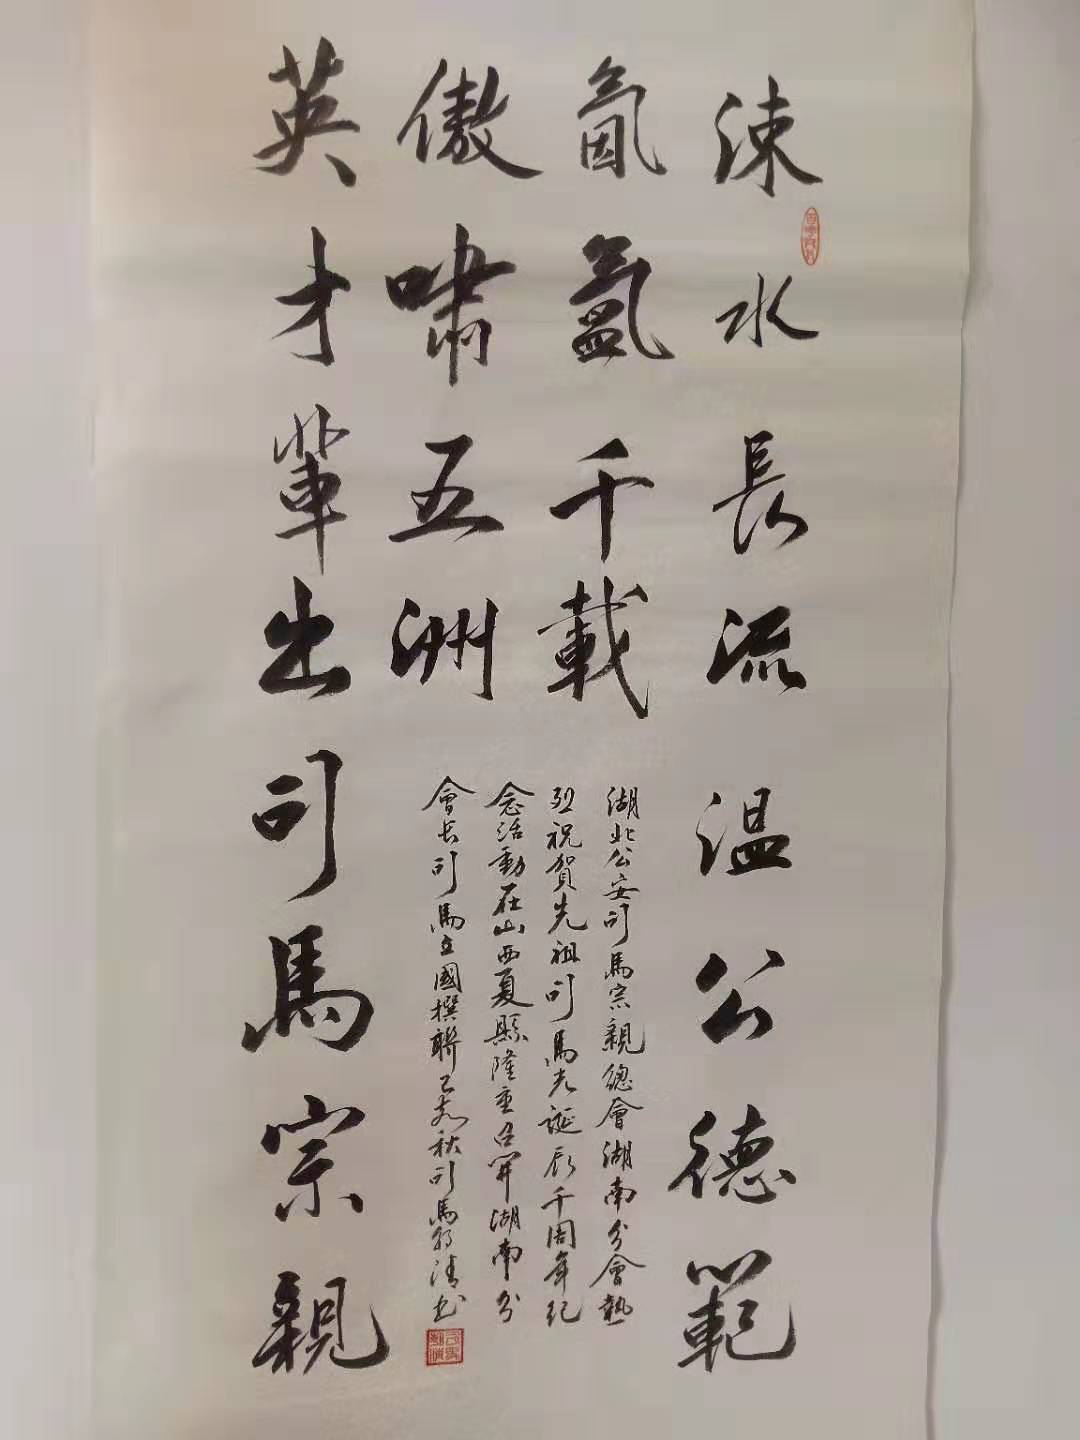 涑水長流温公德範
氤氲千載
傲嘯五洲
英才輩出司馬宗親
湖北公安司馬宗親總會湖南分會熱
烈祝賀先祖司馬光誕辰千周年紀
念活動在山西夏縣隆重召開湖南分
會长司馬立國撰聯己亥秋司馬清书